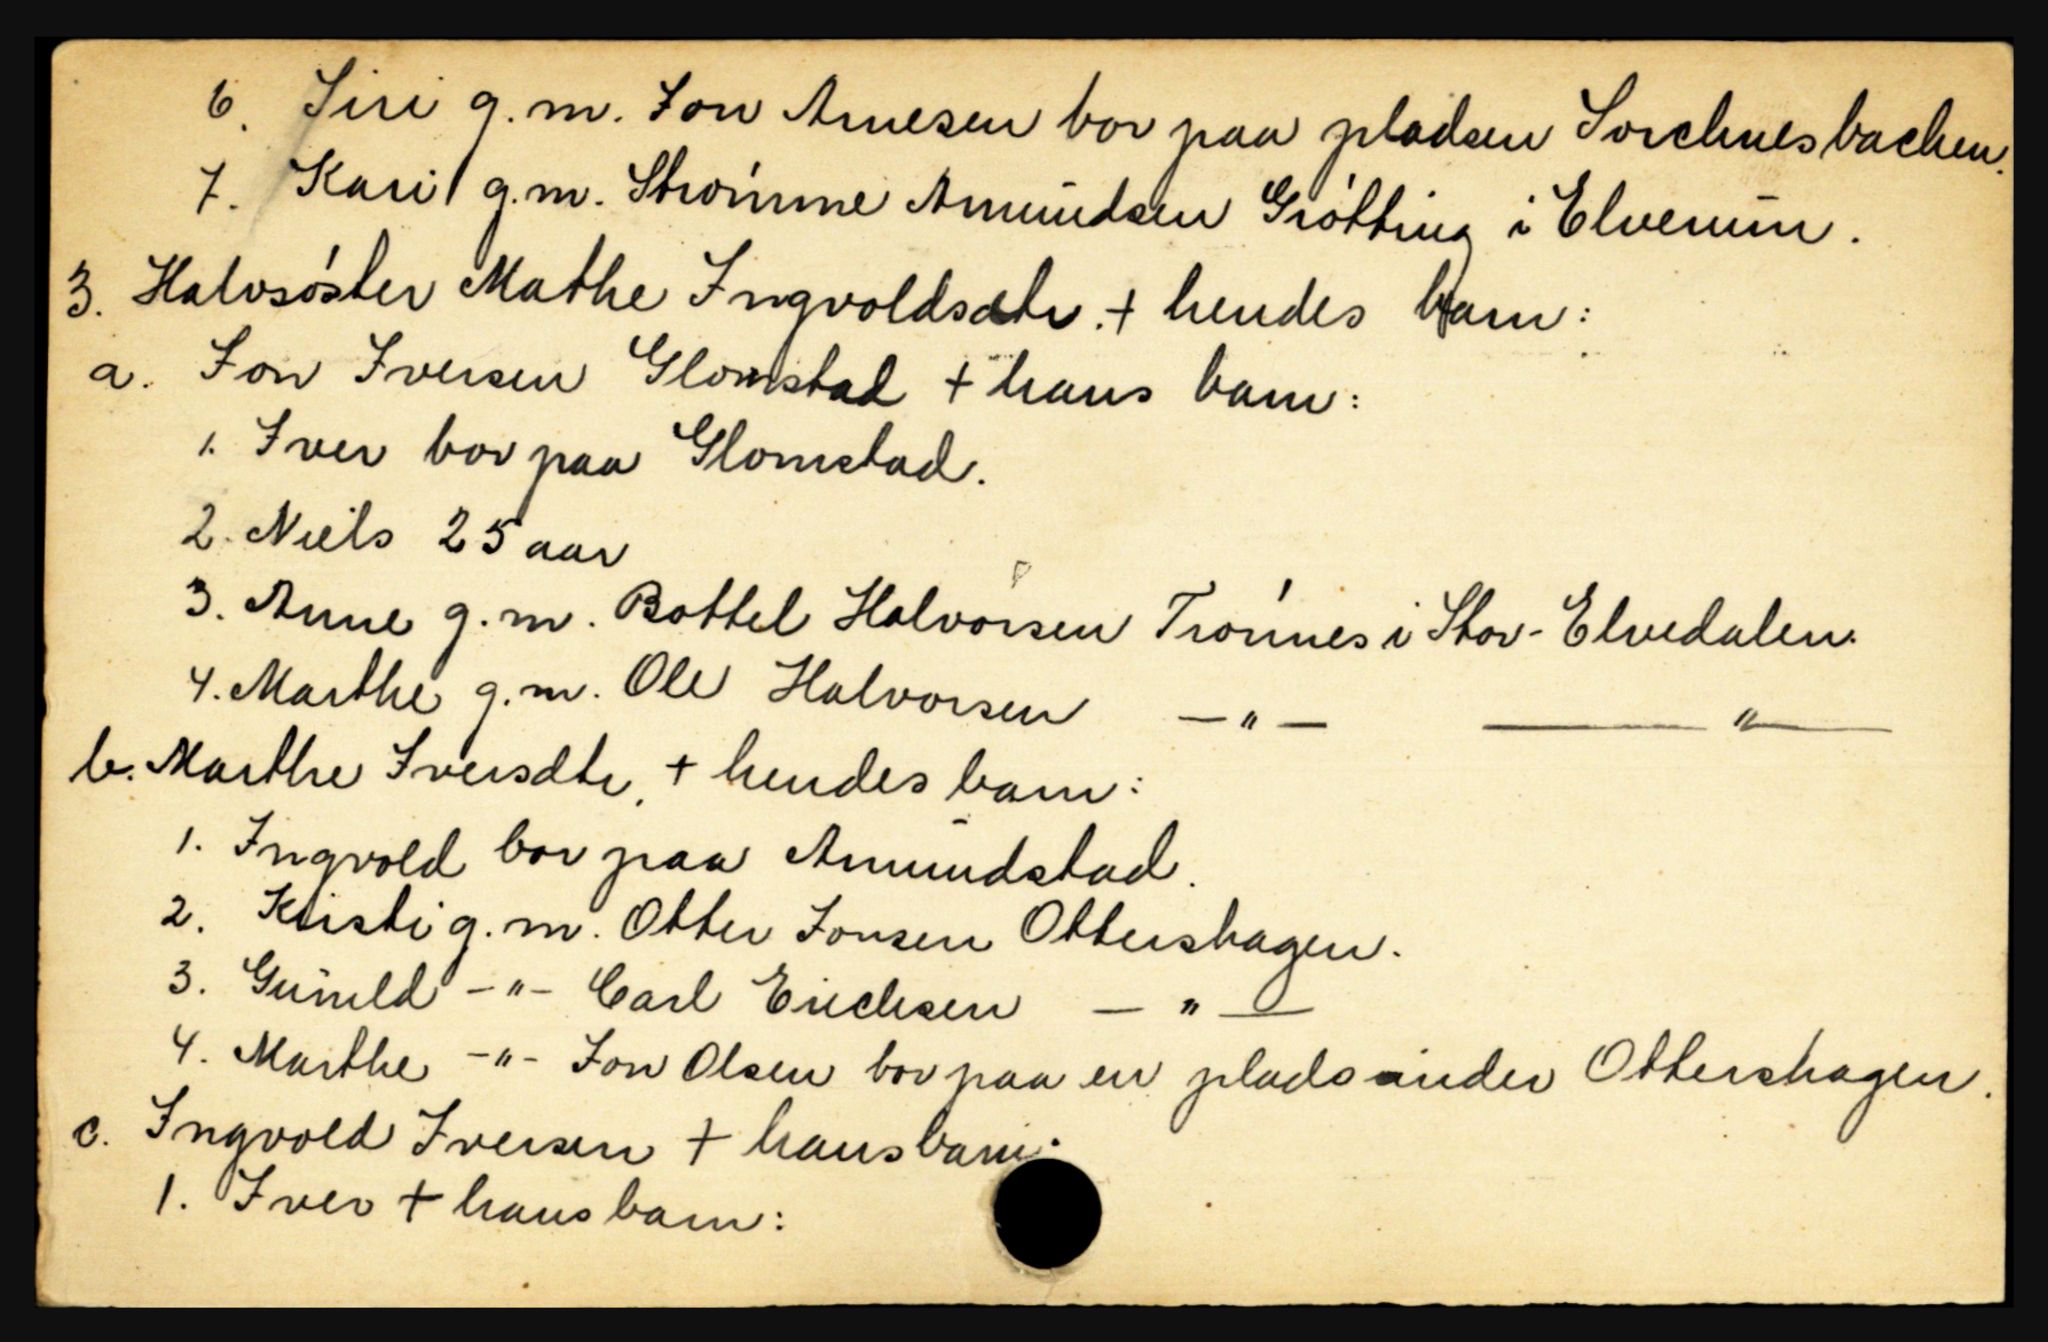 6. Siri g.m. Jon Arnesen bor paa pladsen Sorchnesbachen.
7. Kari g.m. Strømme Amundsen Grøtting i Elverum.
3. Halvsøster Mathe Ingvoldsdtr. + hendes barn:
a. Jon Iversen Glomstad + hans barn:
1. Iver bor paa Glomstad.
2. Niels 25 aar
3. Anne g.m. Bottel Halvorsen Trønnes i Stor-Elvedalen.
4. Marthe g.m. Ole Halvorsen —"— —"—
b. Marthe Iversdtr. + hendes barn:
1. Ingvold bor paa Amundstad.
2. Kirsti g.m. Otter Jonsen Ottershagen.
3. Gunild -"- Carl Erichsen —"—
4. Marthe -"- Jon Olsen bor paa en plads under Ottershagen.
c. Ingvold Iversen + hans barn:
1. Iver + hans barn: